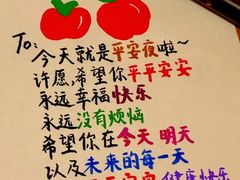 To:
今天就是平安夜啦~
许愿,希望你平平安安
永远幸福快乐
永远没有烦恼
希望你在今天 明天
以及未来的每一天
健康快乐